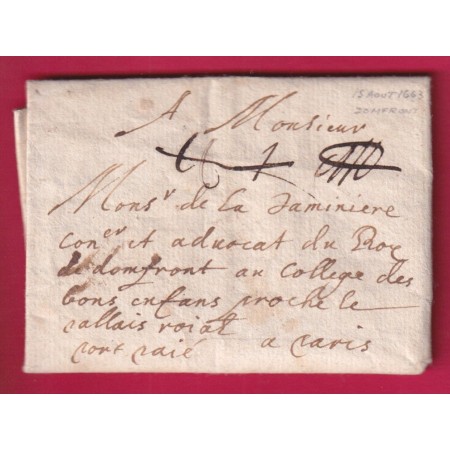 15 AOUT 1663
DOMFRONT
A Monsieur
Monsr de la Jaminiere
coner et advocat du Roy
de domfront au College des
bons enfans proche le
pallais roial
port paié a paris